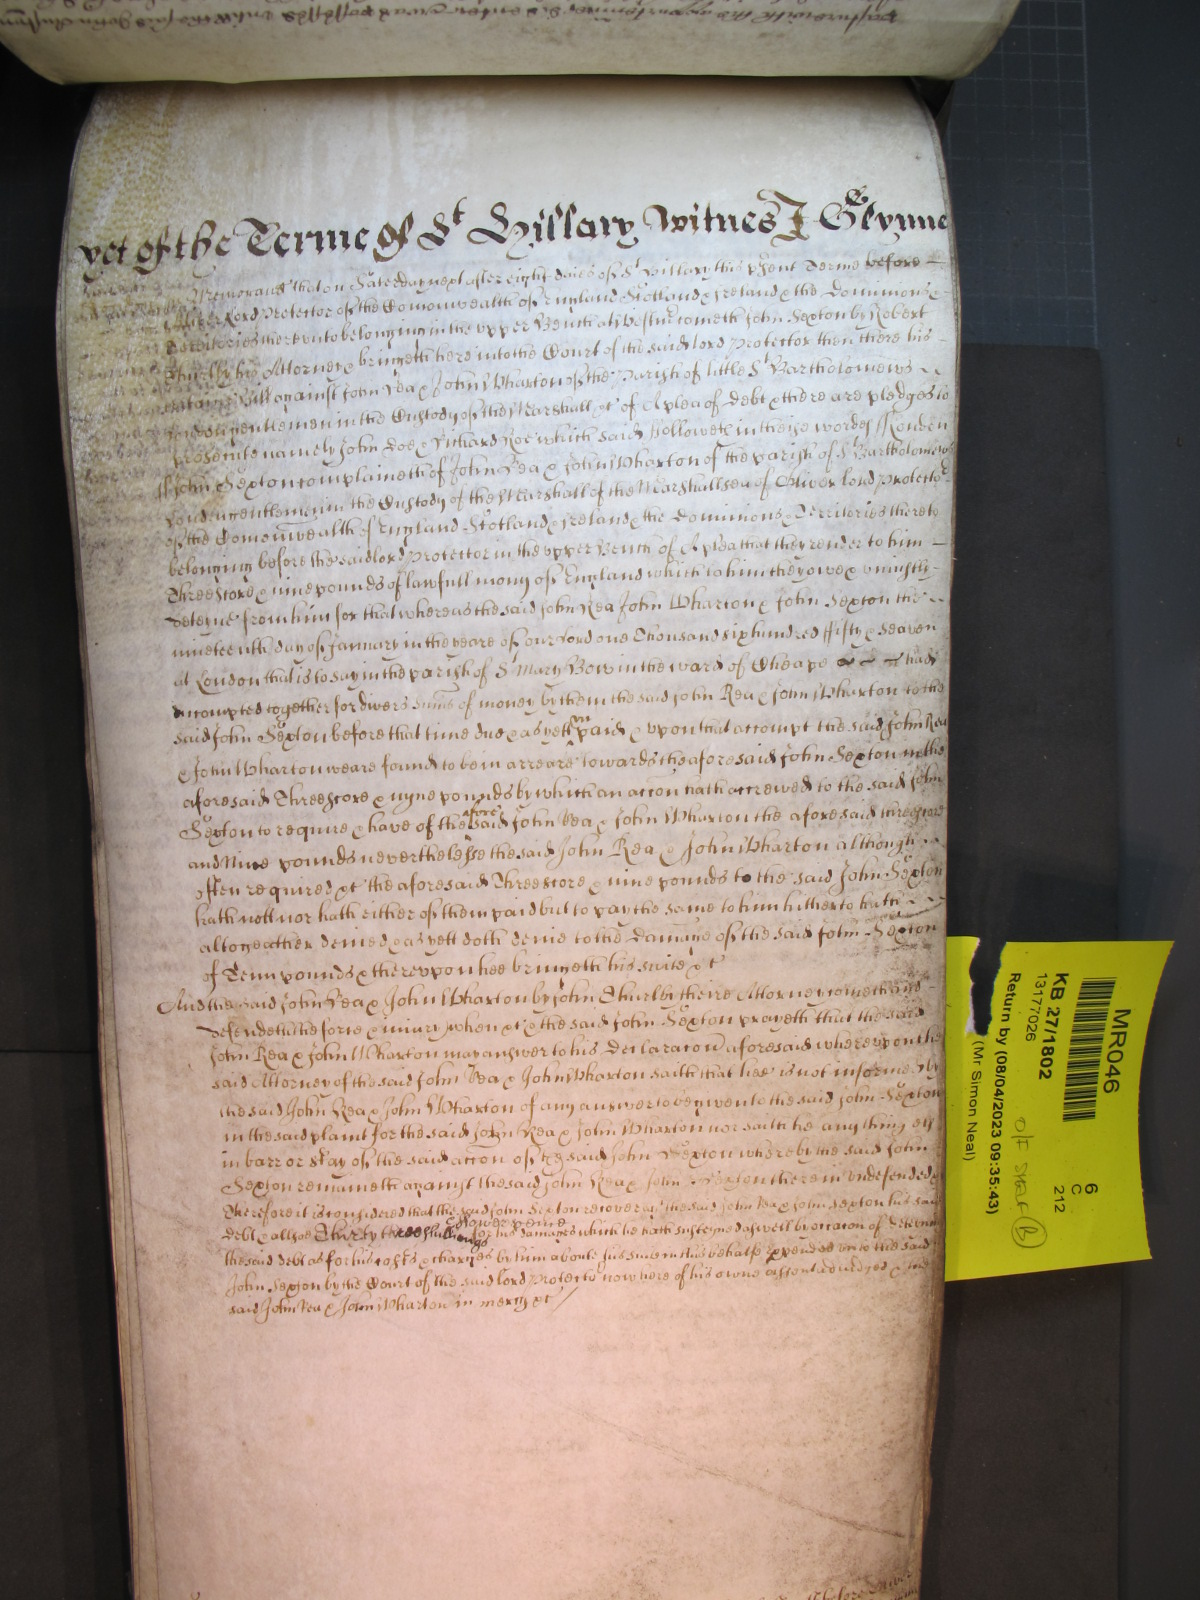 yet of the Terme of St Hillary Witnes J Glynne
Memorand that on Saterday next after eight daies of St Hillary this psent Terme before
Lord Protector of the Comonwealth of England Scotland & Ireland & the Dominions &
Territories thereunto belonging in the upper Bench att Westmr cometh John Sexton by Robert
his Attorney & bringeth here into the Court of the said lord Protector then there his
Bill against John Rea & John Wharton of the Parish of little St Bartholomews
London gentlemen in the Custody of the Marshall &c of A plea of debt & there are pledges to
prosecute namely John Doe & Richard Roe which said followeth in theise wordes London
ss John Sexton complaineth of John Rea & John Wharton of the parish of St Bartholomews
London gentlemen in the Custody of the Marshall of the Marshallsea of Oliver lord Protector
of the Comonwealth of England Scotland & Ireland & the Dominions & Territories thereto
belonging before the said lord Protector in the upper Bench of A plea that they render to him
Threescore & nine pounds of lawfull mony of England which to him they owe & uniustly
deteyne from him for that whereas the said John Rea John Wharton & John Sexton the
nineteenth day of January in the yeare of our Lord one Thousand six hundred fifty & seaven
at London that is to say in the parish of St Mary Bow in the ward of Cheape had
accompted together for divers sumes of money by them the said John Rea & John Wharton to the
said John Sexton before that time due & as yett un paid & upon that accompt the said John Rea
& John Wharton weare found to be in arreare towards the aforesaid John Sexton in the
aforesaid Threescore & nyne pounds by which an accon hath accrewed to the said John
Sexton to require & have of the afore said John Rea & John Wharton the aforesaid threescore
and Nine pounds neverthelesse the said John Rea & John Wharton although
often required &c the aforesaid Threescore & nine pounds to the said John Sexton
hath nott nor hath either of them paid but to pay the same to him hitherto hath
altogeather denied & as yett doth denie to the Damage of the said John Sexton
of Tenn pounds & thereupon hee bringeth his suite &c
And the said John Rea & John Wharton by John Churl by theire Attorney cometh and
defendeth the force & iniury when &c & the said John Sexton prayeth that the said
John Rea & John Wharton may answer to his Declaracon aforesaid whereupon the
said Attorney of the said John Rea & John Wharton saith that hee is not informed by
the said John Rea & John Wharton of any answer to be given to the said John Sexton
in the said plaint for the said John Rea & John Wharton nor saith he any thing els
in barr or stay of the said accon of the said John Sexton whereby the said John
Sexton remaineth against the said John Rea & John therein undefended
Therefore it is considered that the said John Sexton recover ag the said John Rea & John Sexton his said
debt & allsoe Thirty three shillings & fower pence for his damages which he hath susteyned aswell by occacon of deteyning
the said debt as for his costs & charges by him aboute his suite in this behalfe expended unto the said
John Sexton by the Court of the said lord Protector now here of his owne assent adiudged & the
said John Rea & John Wharton in mercy &c
MR046
6
C
212
KB 27/1802
13177026
O/F SHELF B
Return by (08/04/2023 09:35:43)
(Mr Simon Neal)